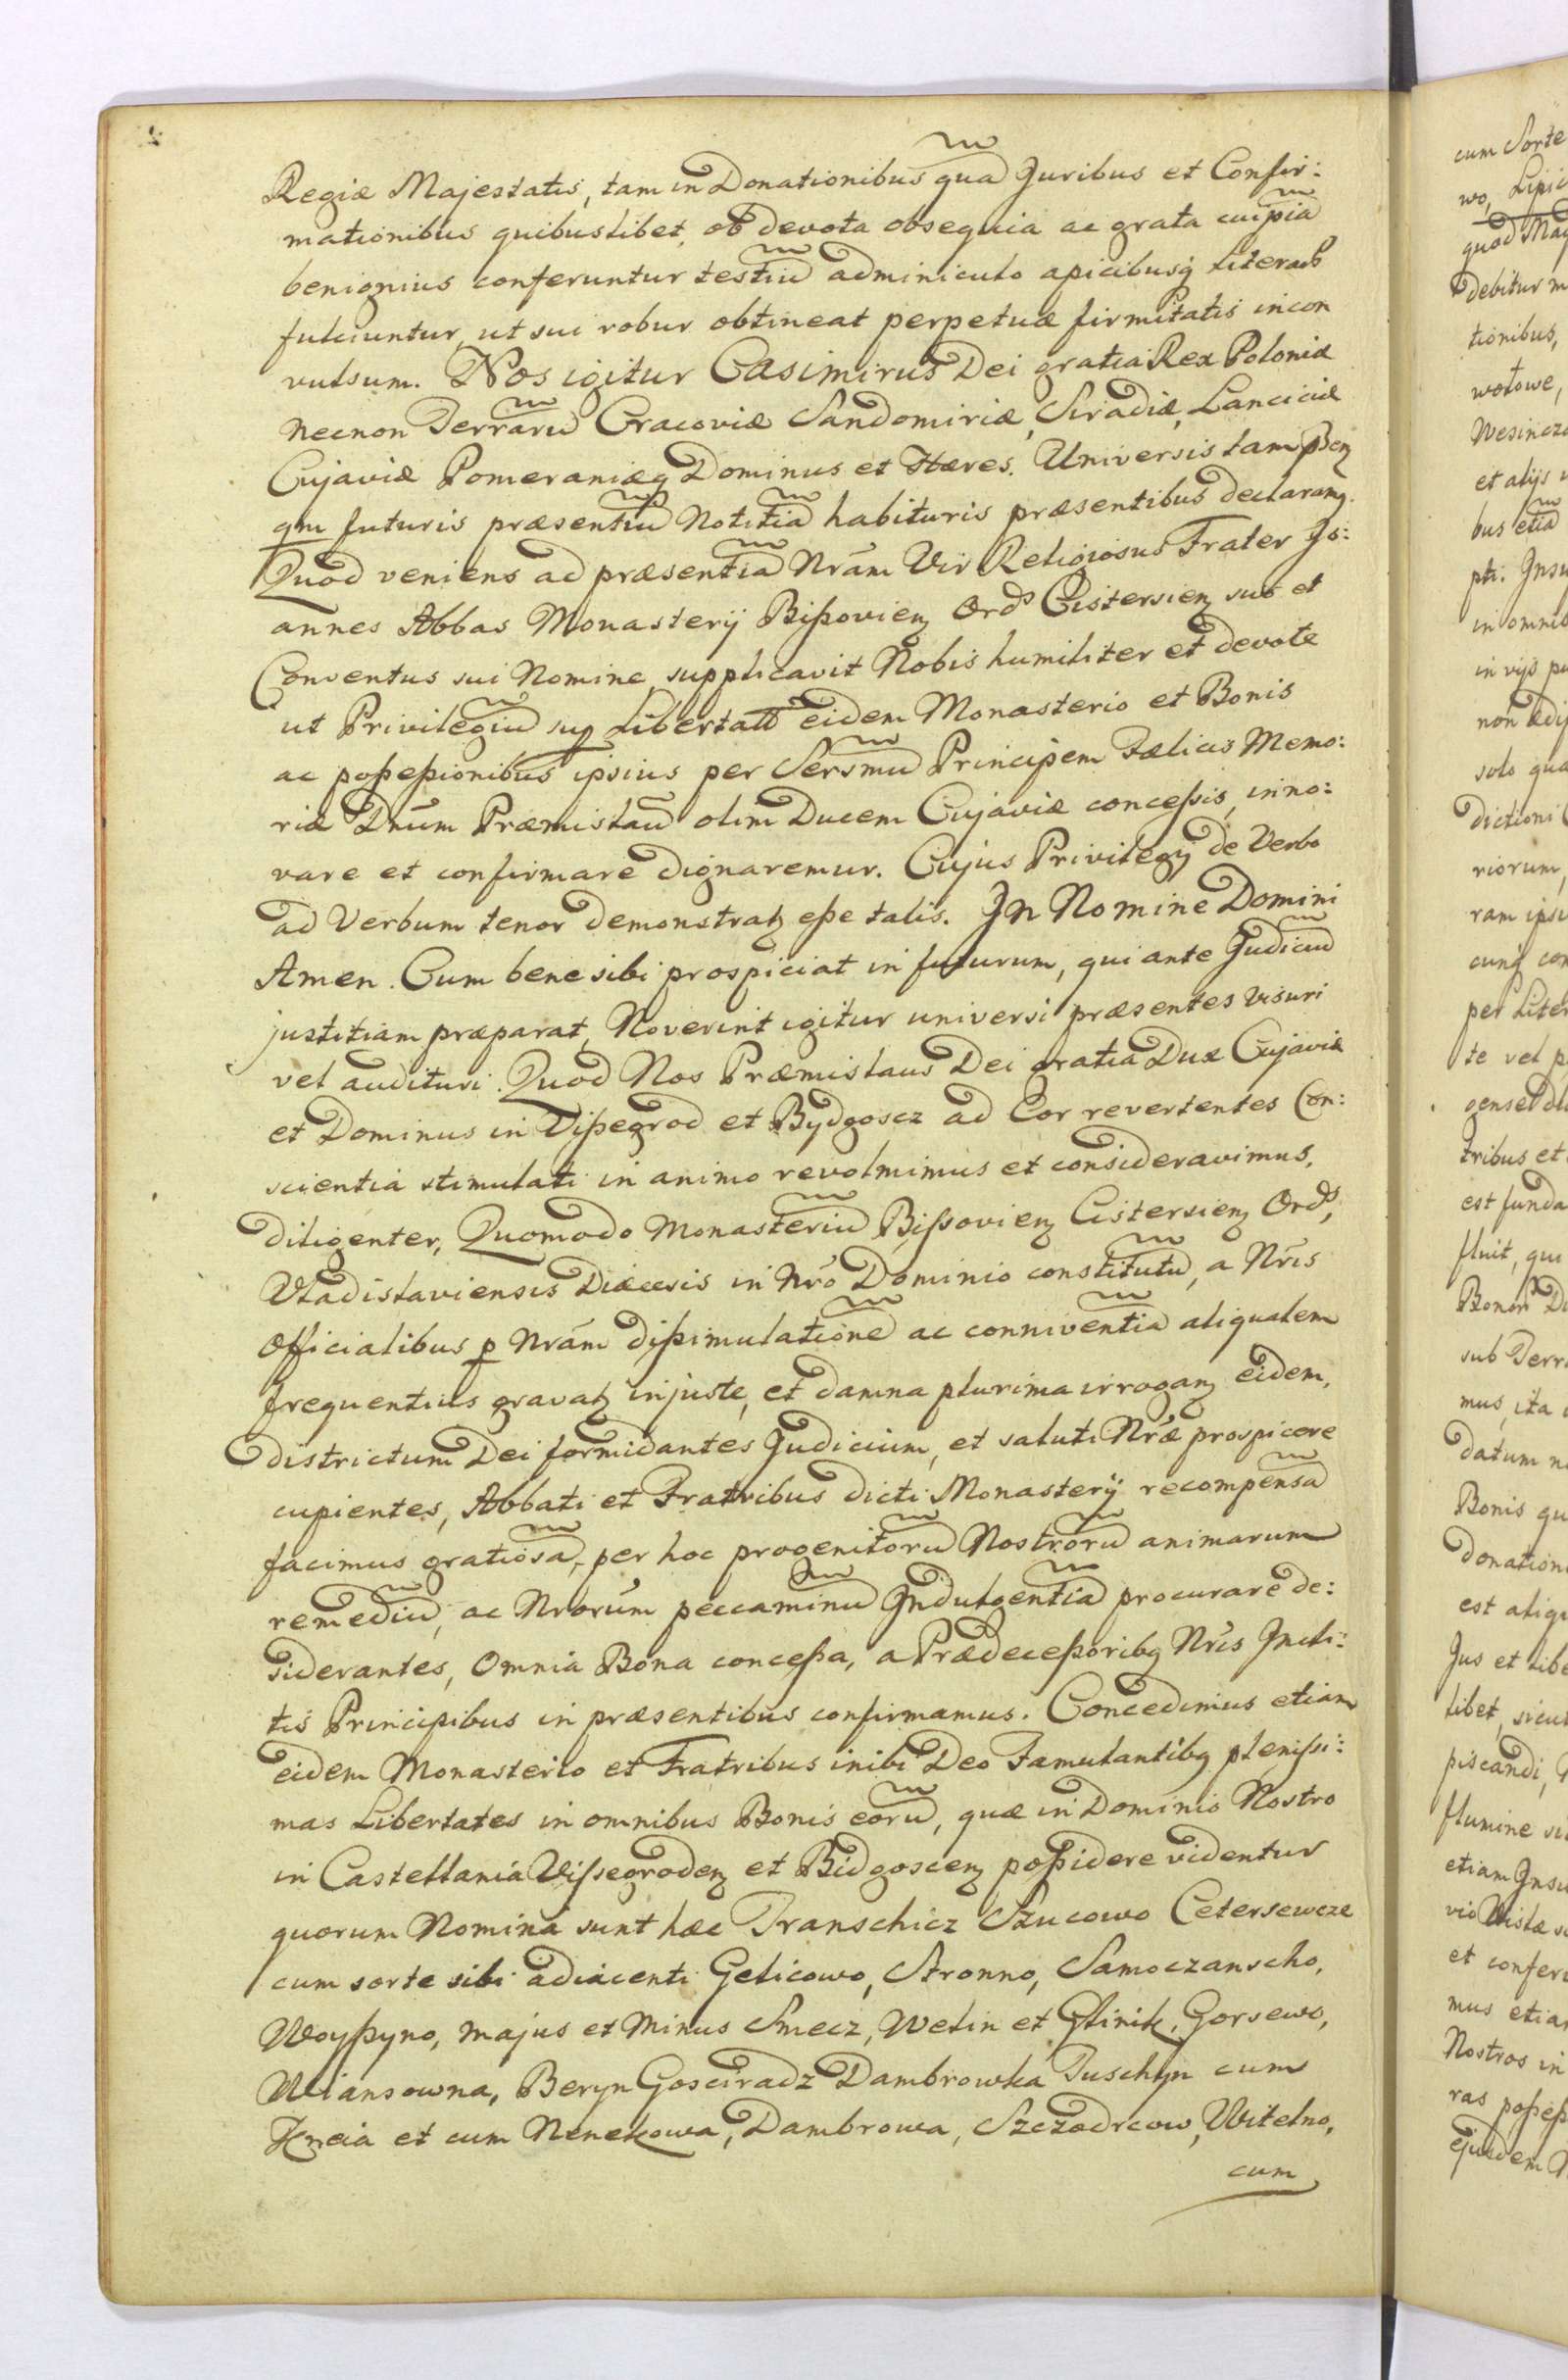 Regiæ Majestatis, tam in Donationibus qua Juribus et Confir:
mationibus quibuslibet, ob devota obsequia ac grata cuipia
benignius conferuntur testiu adminiculo apicibusq Literarb
fulciuntur, ut sui robur obtineat perpetuæ firmitatis incon
vulsum. Nos igitur Casimirus Dei gratia Rex Poloniæ
necnon Terraru Cracoviæ Sandomiriæ, Siradiæ, Lanciciæ
Cujaviæ Pomeraniæq Dominus et Hæres. Universis tam pbcz
qm futuris præsentiu Notitia habituris præsentibus declaramq.
Quod veniens ad præsentia Nram Vir Religiosus Frater Jo:
annes Abbas Monasterij Bißovienz Ordˢ Cisterzienz sub et
Conventus sui Nomine, supplicavit Nobis humiliter et devote
ut Privilegiu sup Libertatb eidem Monasterio et Bonis
ac poßeßionibus ipsius per Sersmu Principem Fælicis Memo:
riæ Dnum Præmislau olim Ducem Cujaviæ conceßis, inno:
vare et confirmare dignaremur. Cujus Privilegij de Verbo
ad Verbum tenor demonstratz eße talis. In Nomine Domini
Amen. Cum bene sibi prospiciat in futurum, qui ante Judiciu
justitiam præparat, Noverint igitur universi præsentes visuri
vel audituri. Quod Nos Præmislaus Dei gratia Dux Cujaviæ
et Dominus in Vißegrod et Bydgoscz ad Cor revertentes Con:
scientia stimulati in animo revolmimus et consideravimus,
diligenter, Quomodo Monasteriu Bißovienz Cistersienz Ordˢ,
Vladislaviensis Diæcesis in Nro Dominio constitutu, a Nris
Officialibus p Nram dißimulatione ac conniventia aliqualem
frequentius gravatz injuste, et damna plurima irroganz eidem,
districtum Dei formidantes Judicium, et saluti Nræ prospicere
cupientes, Abbati et Fratribus dicti Monasterij recompensa
facimus gratiosa, per hoc progenitoru Nostroru animarum
remediu, ac Nrorum peccaminu Indulgentia procurare de:
siderantes, Omnia Bona conceßa, a Prædeceßoribq Nris Incli:
tis Principibus in præsentibus confirmamus. Concedimus etiam
eidem Monasterio et Fratribus inibi Deo Famulantibq plenißi:
mas Libertates in omnibus Bonis eoru, quæ in Dominio Nostro
in Castellania Vissegrodenz et Bidgoscenz poßidere videntur
quorum Nomina sunt hæc Transchicz Szucowo Cetersewcze
cum sorte sibi adiacenti Gelicowo, Stronno, Samoczanscho,
Woyßyno, majus et Minus Smecz, Welin et Glinik, Gorsewo,
Wiansowna, Beryn Gosciradz Dambrowka Tuschyn cum
Kncia et cum Nenekowa, Dambrowa, Szczodrcow, Witelno,
cum